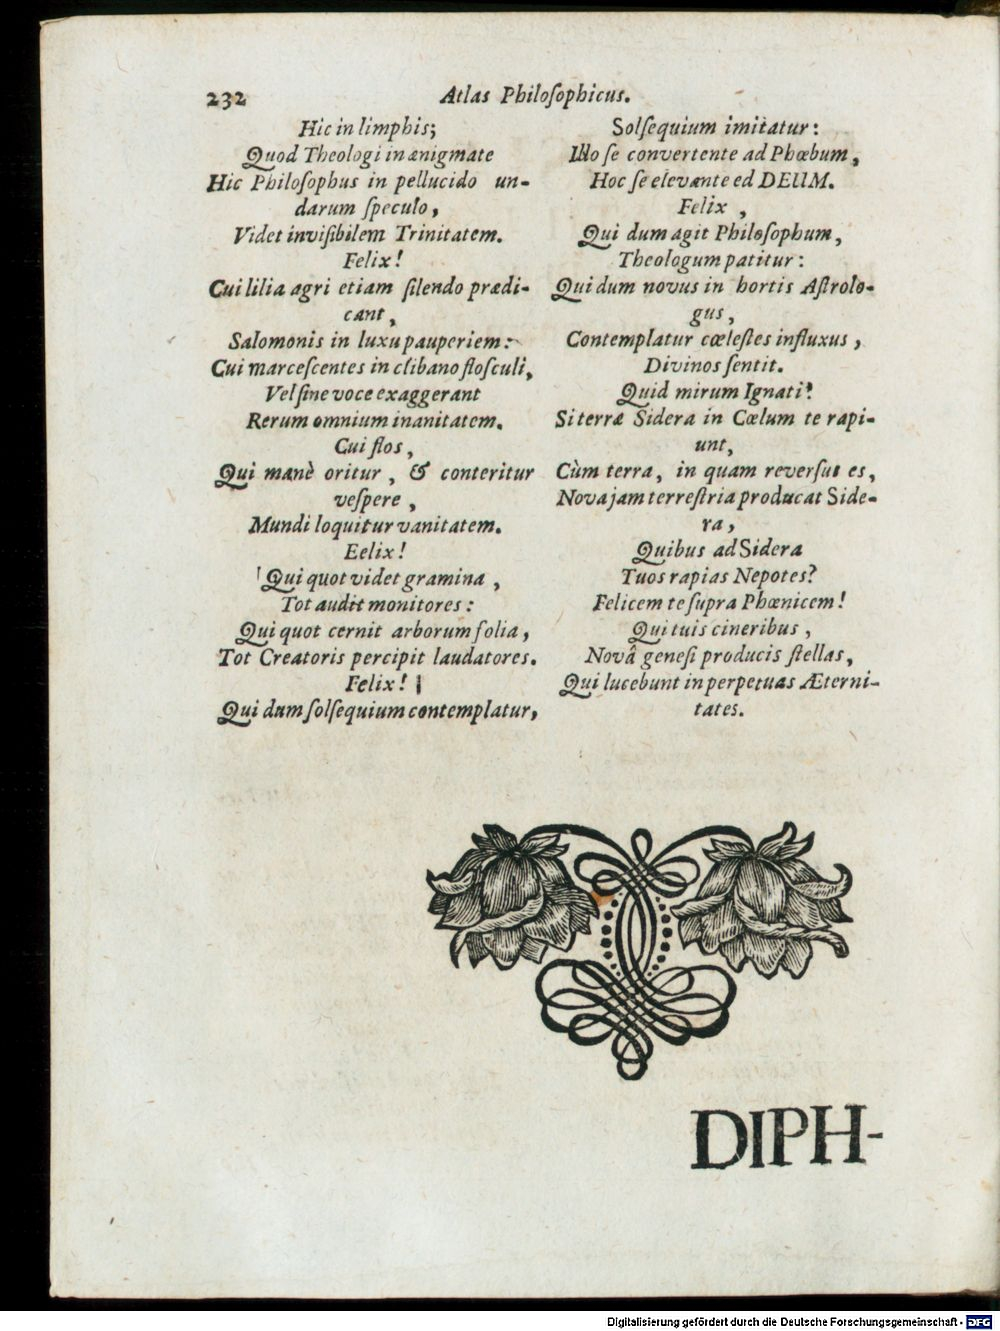 232
Atlas Philoſophicus.
Hic in limphis;
Quod Theologi in ænigmate
Hic Philoſophus in pellucido un-
darum ſpeculo,
Videt inviſibilem Trinitatem.
Felix!
Cui lilia agri etiam ſilendo prædi-
cant,
Salomonis in luxu pauperiem:
Cui marceſcentes in clibano floſculi,
Vel ſine voce exaggerant
Rerum omnium inanitatem.
Cui flos,
Qui manè oritur, & conteritur
veſpere,
Mundi loquitur vanitatem.
Eelix!
Qui quot videt gramina,
Tot audit monitores:
Qui quot cernit arborum folia,
Tot Creatoris percipit laudatores.
Felix!
Qui dum ſolſequium contemplatur,
Solſequium imitatur:
Illo ſe convertente ad Phœbum,
Hoc ſe elevante ed DEUM.
Felix,
Qui dum agit Philoſophum,
Theologum patitur:
Qui dum novus in hortis Aſtrolo-
gus,
Contemplatur cœleſtes influxus,
Divinos ſentit.
Quid mirum Ignati?
Si terræ Sidera in Cœlum te rapi-
unt,
Cùm terra, in quam reverſus es,
Nova jam terreſtria producat Side-
ra,
Quibus ad Sidera
Tuos rapias Nepotes?
Felicem te ſupra Phœnicem!
Qui tuis cineribus,
Novâ geneſi producis ſtellas,
Qui lucebunt in perpetuas Æterni-
tates.
DIPH-
Digitalisierung gefördert durch die Deutsche Forschungsgemeinschaft - DFG